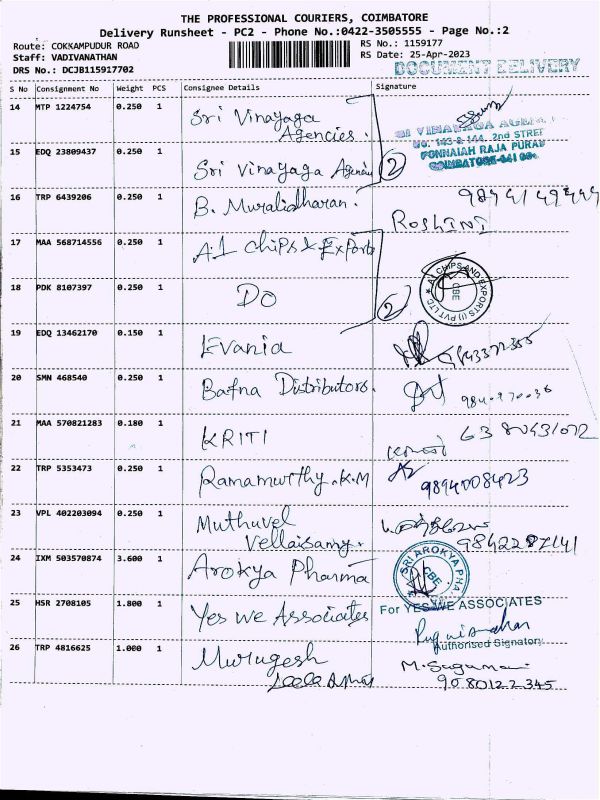 THE PROFESSIONAL COURIERS, COIMBATORE
Delivery Runsheet - PC2 - Phone No.:0422-3505555 - Page No.:2
Route: COKKAMPUDUR ROAD
Staff: VADIVANATHAN
DRS No.: DCJB115917702
RS No.: 1159177
RS Date: 25-Apr-2023
DOCUMENT DELIVERY
S No Consignment No Weight PCS Consignee Details Signature
14 MTP 1224754 0.250 1 Sri Vinayaga Agencies.
SRI VINAYAGA
NO. 143 & 144, 2nd STREET
PONNAIAH RAJA PURAM
COIMBATORE-641 001
15 EDQ 23809437 0.250 1 Sri Vinayaga 2
16 TRP 6439206 0.250 1 B. Muralidharan. ROSHINI
17 MAA 568714556 0.250 1 A1 Chips & Exports
A1 CHIPS AND EXPORTS (I) PVT LTD CBE
18 PDK 8107397 0.250 1 DO 2
19 EDQ 13462170 0.150 1 Evania
20 SMN 468540 0.250 1 Bafna Distributors.
21 MAA 570821283 0.180 1 KRITI
22 TRP 5353473 0.250 1 Ramamurthy.K.M 9894008423
23 VPL 402203094 0.250 1 Muthuvel
Vellaisamy.
24 IXM 503570874 3.600 1 Arokya Pharma
SRI AROKYA PHA CBE
25 HSR 2708105 1.800 1 Yes We Associates
For YES WE ASSOCIATES
Authorised Signatory
26 TRP 4816625 1.000 1 Murugesh
9080122345